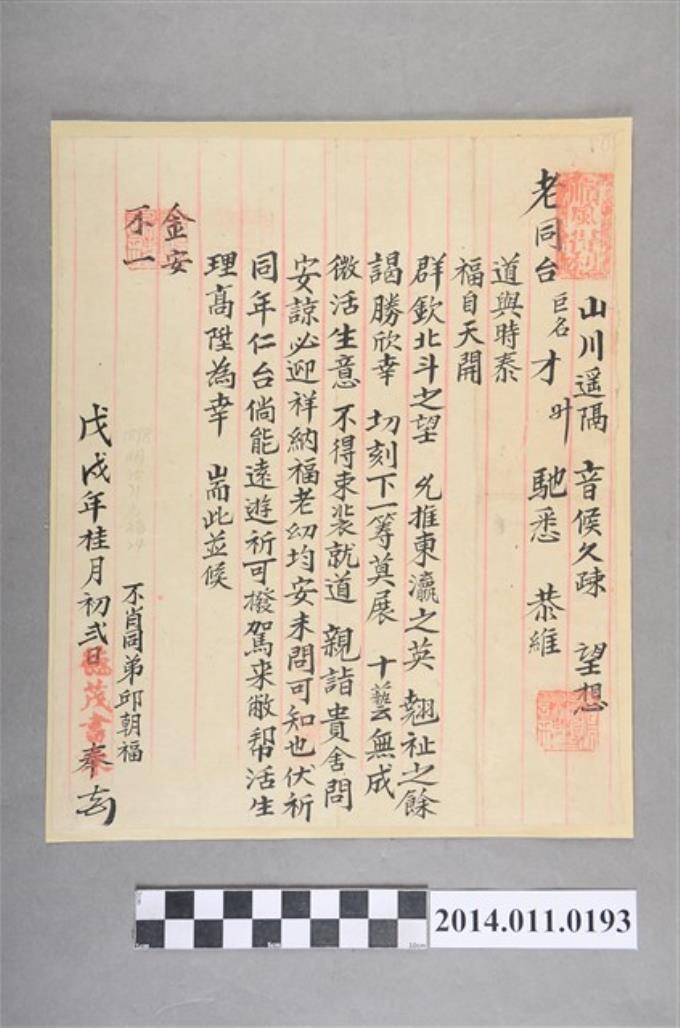 山川遥隔　音候久疎　望想
老同台　巨名　才　馳悉　恭維
道與時泰
福自天開
群欽北斗之望　允推東瀛之英　翹祉之餘
謁勝欣幸　切刻下一籌莫展　十藝無成
微活生意　不得束裝就道　親詣貴舍問
安諒必迎祥納福老幼均安未問可知也伏祈
同年仁台倘能遠遊祈可撥駕来敝帮活生
理高陞為幸　耑此並候
金安
不一
不肖同弟邱朝福
戊戌年桂月初弍日　奉
2014.011.0193